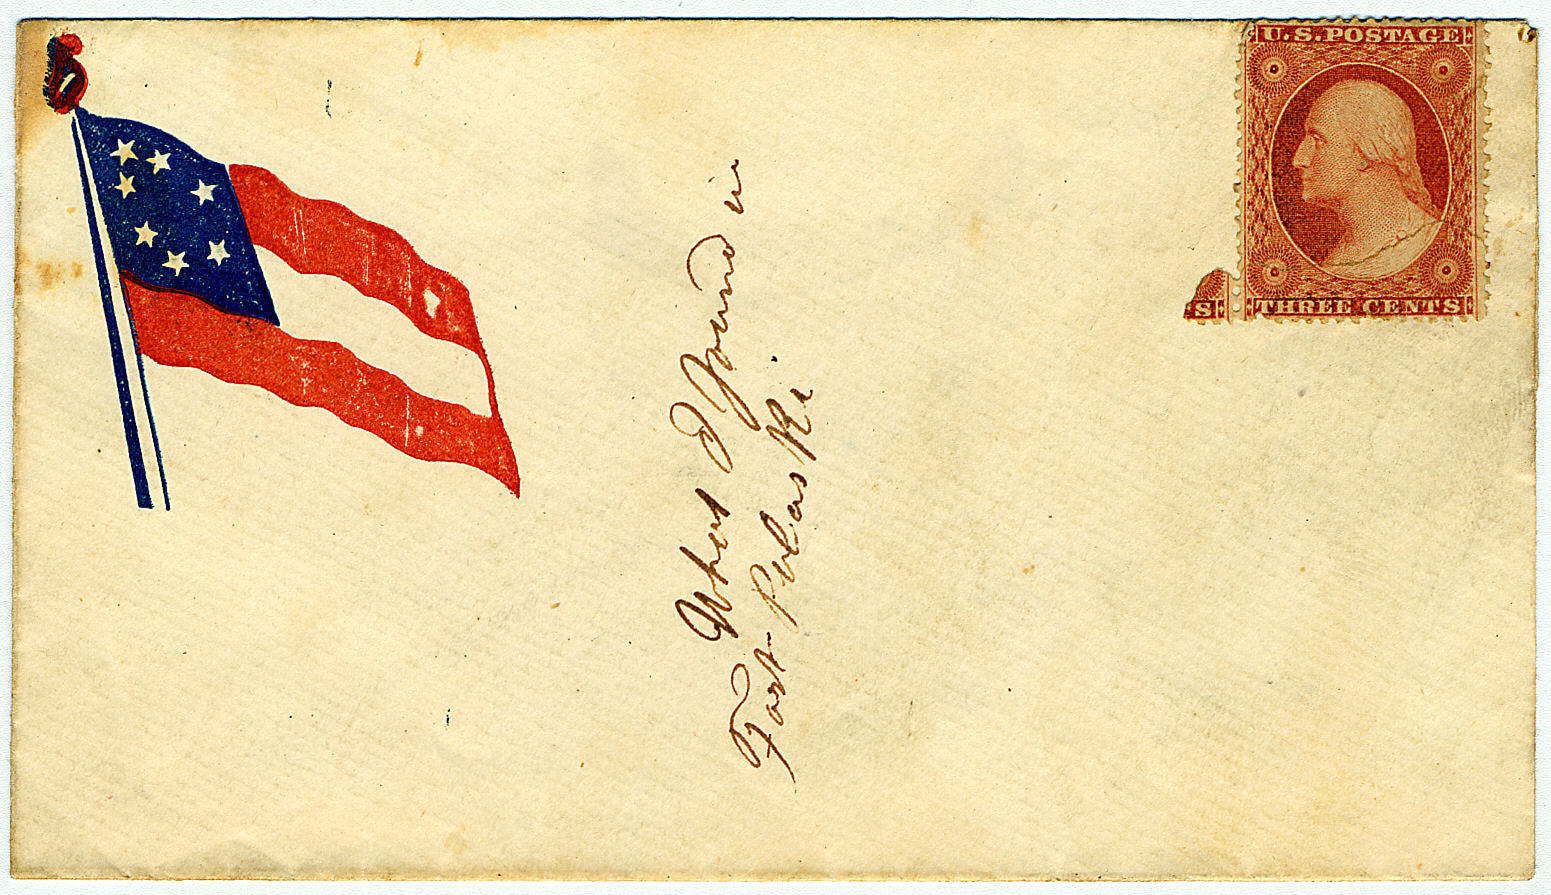 U.S. POSTAGE
S THREE CENTS
What I found in
Fort Pulaski